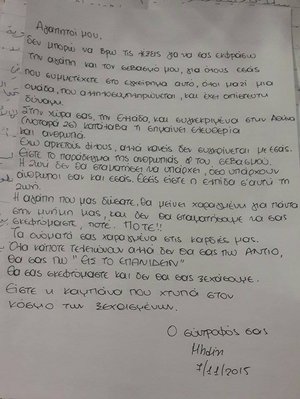 Αγαπητοί μου,
δεν μπορώ να βρω τις λέξεις για να σας εκφράσω
την αγάπη και τον σεβασμό μου, για όλους εσάς
που συμμετέχετε στο εγχείρημα αυτό, όλοι μαζί μια
ομάδα, που αλληλοσυμπληρώνεται, και έχει απίστευτη
δύναμη.
Στην χώρα σας, την Ελλάδα, και συγκεκριμένα στην
(Νοταρά 26) κατάλαβα τι σημαίνει ελευθερία
και ανθρωπιά.
Έχω αρκετούς φίλους, αλλά κανείς δεν συγκρίνεται με εσάς.
Είστε το παράδειγμα της ανθρωπιάς & του σεβασμού.
Η ζωή δεν θα σταματήσει να υπάρχει, όσο υπάρχουν
άνθρωποι σαν και εσάς. Εσείς είστε η ελπίδα σ'αυτή τη
ζωή.
Η αγάπη που μας δώσατε, θα μείνει χαραγμένη για πάντα
στην μνήμη μας, και δεν θα σταματήσουμε να σας
σκεφτόμαστε, ποτέ. ΠΟΤΕ!!
Τα ονόματά σας χαραγμένα στις καρδιές μας.
Όλα κάποτε τελειώνουν αλλά δεν θα σας πω ΑΝΤΙΟ,
θα σας πω "ΕΙΣ ΤΟ ΕΠΑΝΙΔΕΙΝ"
Θα σας σκεφτόμαστε και δεν θα σας ξεχάσουμε.
Είστε η καμπάνα που χτυπά στον
κόσμο των ξεχασμένων.
Ο σύντροφός σας
7/11/2015